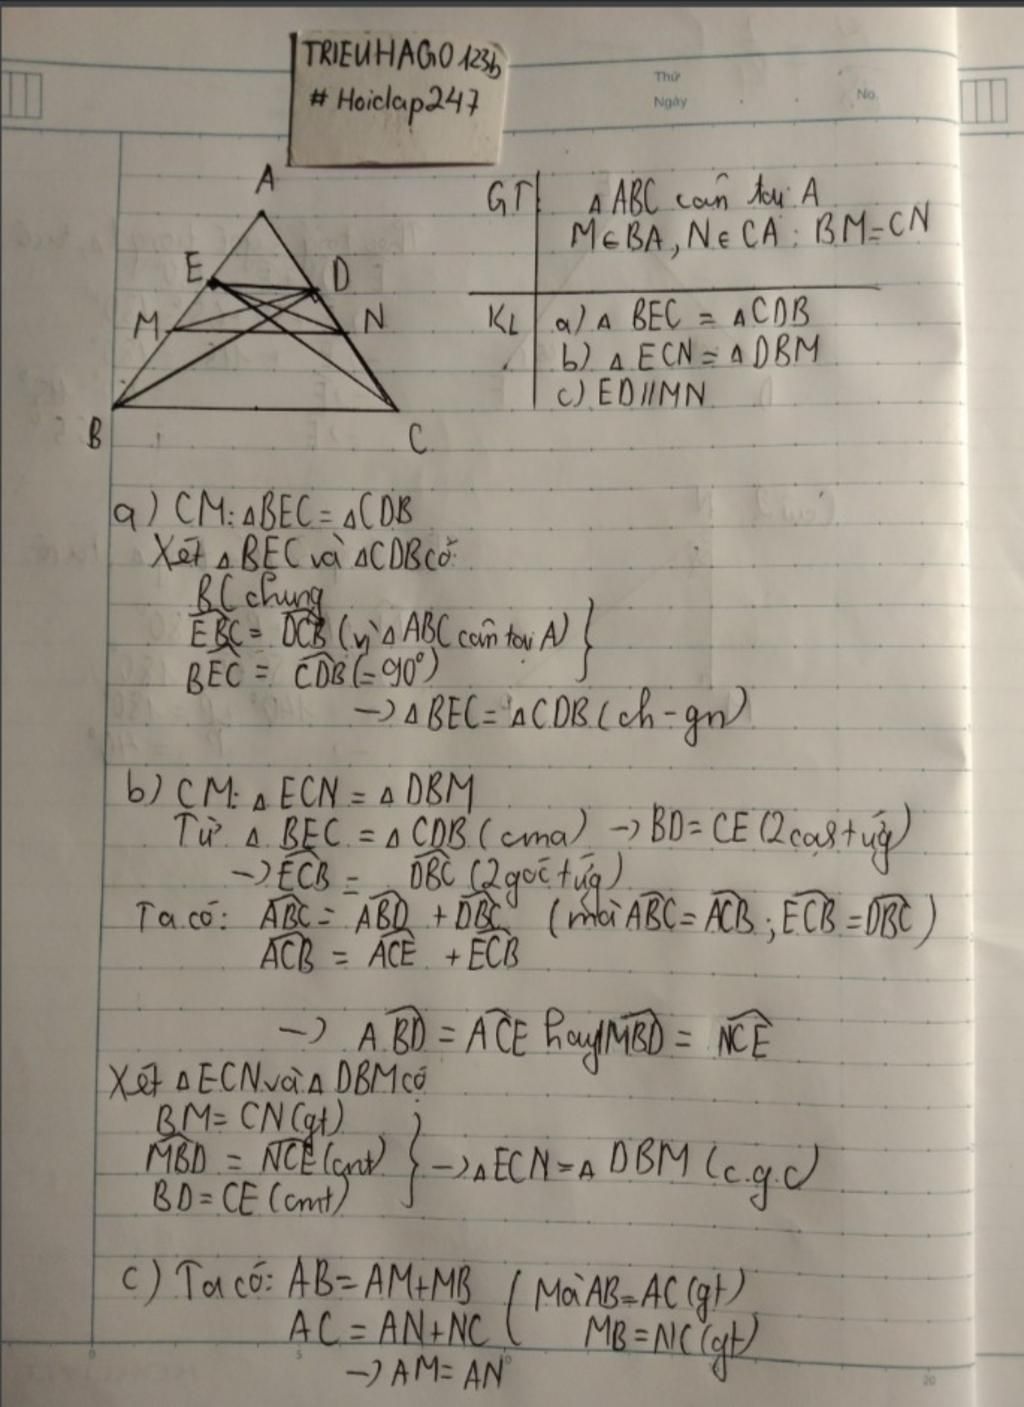 TRIEUHAGO123b
# Hoidap247
Thứ
Ngày
No.
A
E
D
M
N
B
C
GT
△ABC cân tại A
M∈BA, N∈CA : BM=CN
KL
a) △ BEC = △CDB
b) △ ECN = △DBM
c) ED//MN
a) CM: △BEC = △CDB
Xét △BEC và △CDB có:
BC chung
\widehat{EBC} = \widehat{DCB} (vì △ABC cân tại A)
\widehat{BEC} = \widehat{CDB} (=90°)
→ △BEC = △CDB (ch-gn)
b) CM: △ ECN = △ DBM
Từ △ BEC = △ CDB (cma) → BD = CE (2 cạh t ứg)
→ \widehat{ECB} = \widehat{DBC} (2 góc t ứg)
Ta có: \widehat{ABC} = \widehat{ABD} + \widehat{DBC} (mà \widehat{ABC} = \widehat{ACB} ; \widehat{ECB} = \widehat{DBC})
\widehat{ACB} = \widehat{ACE} + \widehat{ECB}
→ \widehat{ABD} = \widehat{ACE} hay \widehat{MBD} = \widehat{NCE}
Xét △ECN và △ DBM có
BM = CN (gt)
\widehat{MBD} = \widehat{NCE} (cmt)
BD = CE (cmt)
→ △ECN = △ DBM (c.g.c)
c) Ta có: AB = AM+MB ( Mà AB=AC (gt)
AC = AN+NC ( MB = NC (gt)
→ AM = AN
0 5 10 20